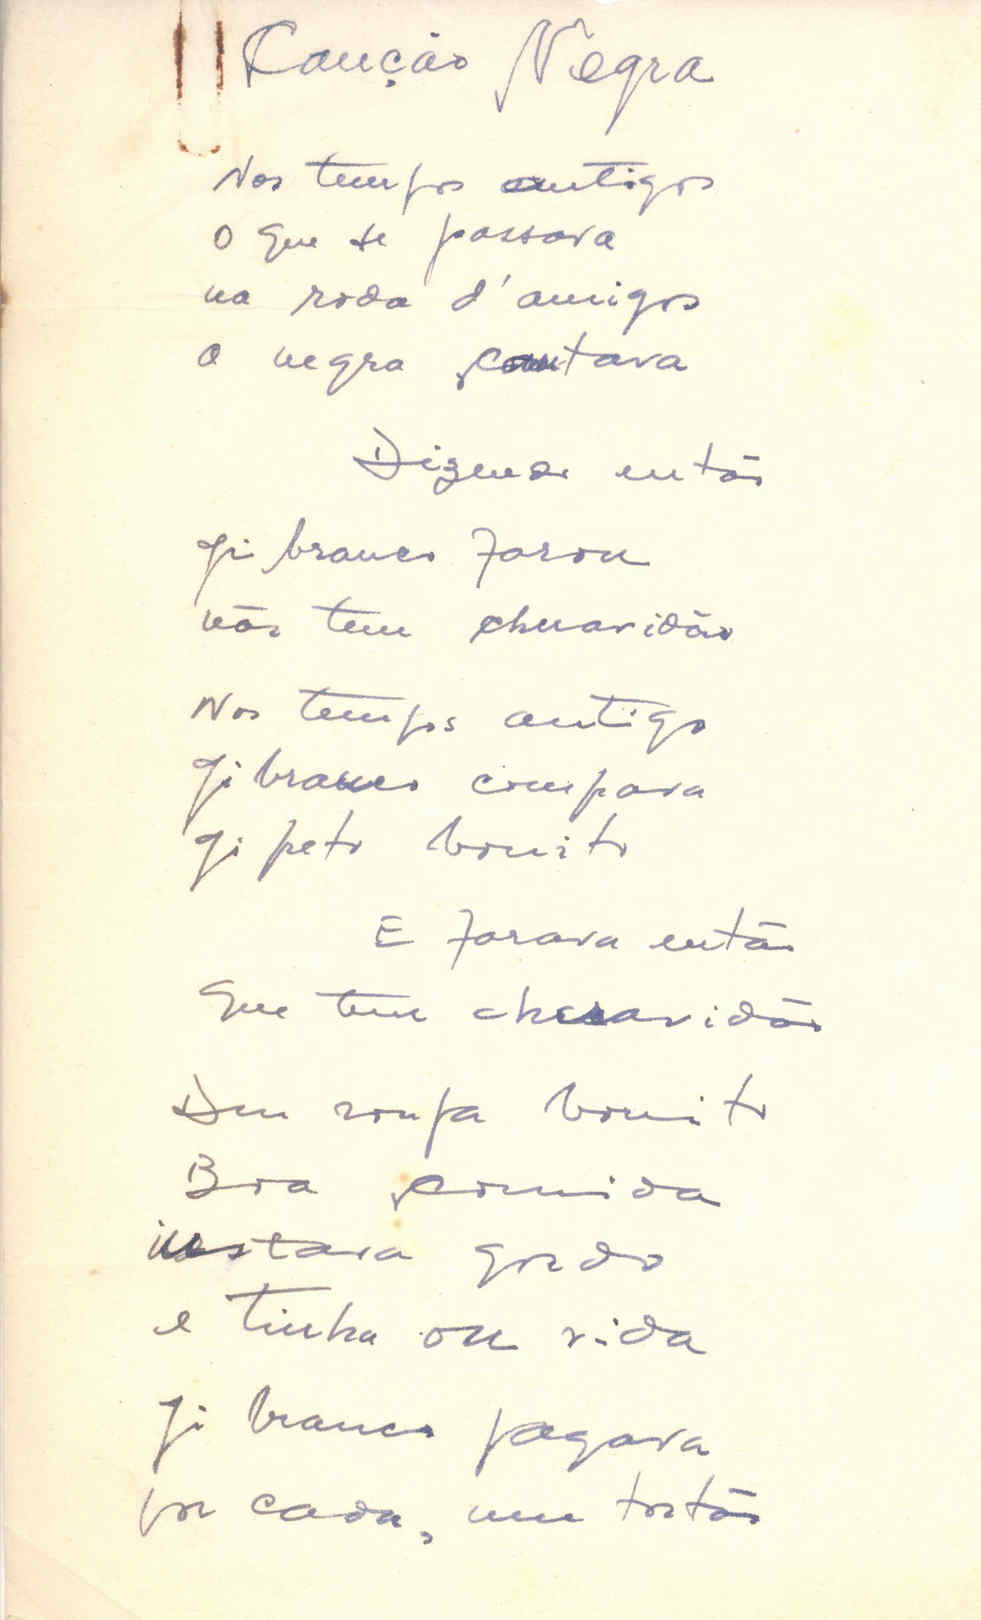 Canção Negra
Nos tempos antigos
O que se passava
na roda d'amigos
a negra cantava
Dizendo então
gi branco Farou
não tem chuaridão
Nos tempos antigo
gi branco compava
gi peto bonito
E Farava então
Que tem chuaridão
Deu roupa bonito
Boa comida
estava gordo
e tinha ou vida
gi branco pagava
por cada, um tostão